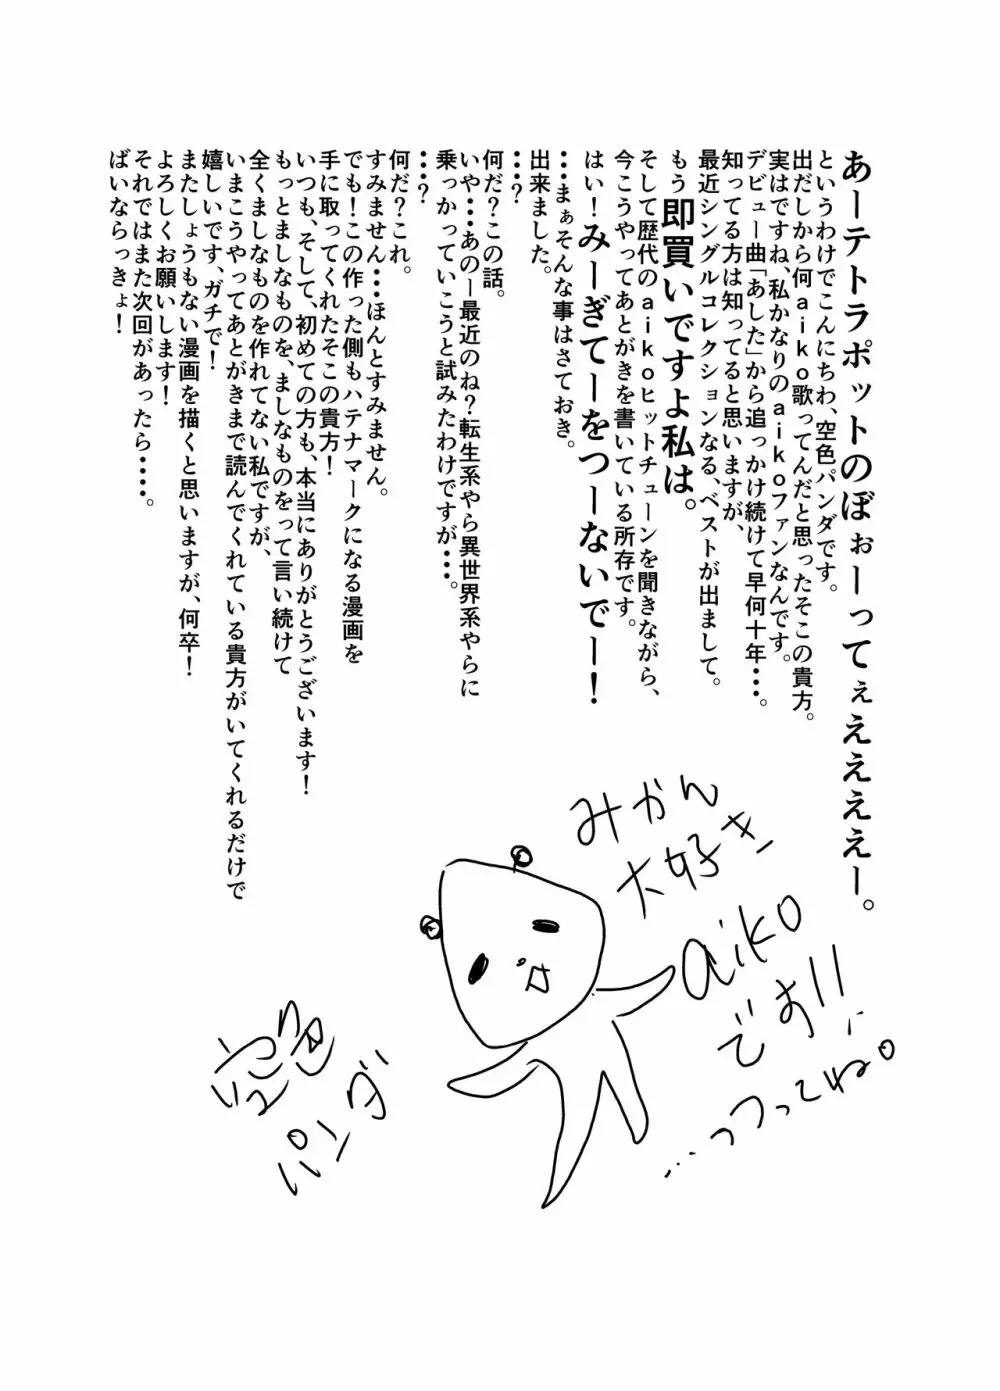 あーテトラポットのぼぉーってぇええええー。
というわけでこんにちわ、空色パンダです。
出だしから何aiko歌ってんだと思ったそこの貴方。
実はですね、私かなりのaikoファンなんです。
デビュー曲「あした」から追っかけ続けて早何十年・・・。
知ってる方は知ってると思いますが、
最近シングルコレクションなる、ベストが出まして。
もう即買いですよ私は。
そして歴代のaikoヒットチューンを聞きながら、
今こうやってあとがきを書いている所存です。
はい！みーぎてーをつーないでー！
・・・まぁそんな事はさておき。
出来ました。
・・・？
何だ？この話。
いや・・・あのー最近のね？転生系やら異世界系やらに
乗っかっていこうと試みたわけですが・・・。
・・・？
何だ？これ。
すみません・・・ほんとすみません。
でも！この作った側もハテナマークになる漫画を
手に取ってくれたそこの貴方！
いつも、そして、初めての方も、本当にありがとうございます！
もっとましなものを、ましなものをって言い続けて
全くましなものを作れてない私ですが、
いまこうやってあとがきまで読んでくれている貴方がいてくれるだけで
嬉しいです、ガチで！
またしょうもない漫画を描くと思いますが、何卒！
よろしくお願いします！
それではまた次回があったら・・・・。
ばいならっきょ！
みかん
大好き
aiko
です!!
...っつってね。
空色
パンダ